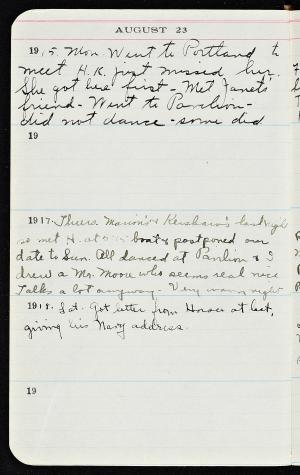 AUGUST 23
1915. Mon. Went to Portland to
meet H.K. just missed her.
She got here first - Met Janet's
friend - Went to Pavilion -
did not dance - some did
19
1917. Thurs. Marion's & Kershaw's last night
so met H. at boat & postponed our
date to Sun. All danced at Pavilion & I
drew a Mr. Moore who seems real nice
Talks a lot anyway - Very warm night
1918. Sat. Got letter from Horace at last,
giving his Navy address.
19